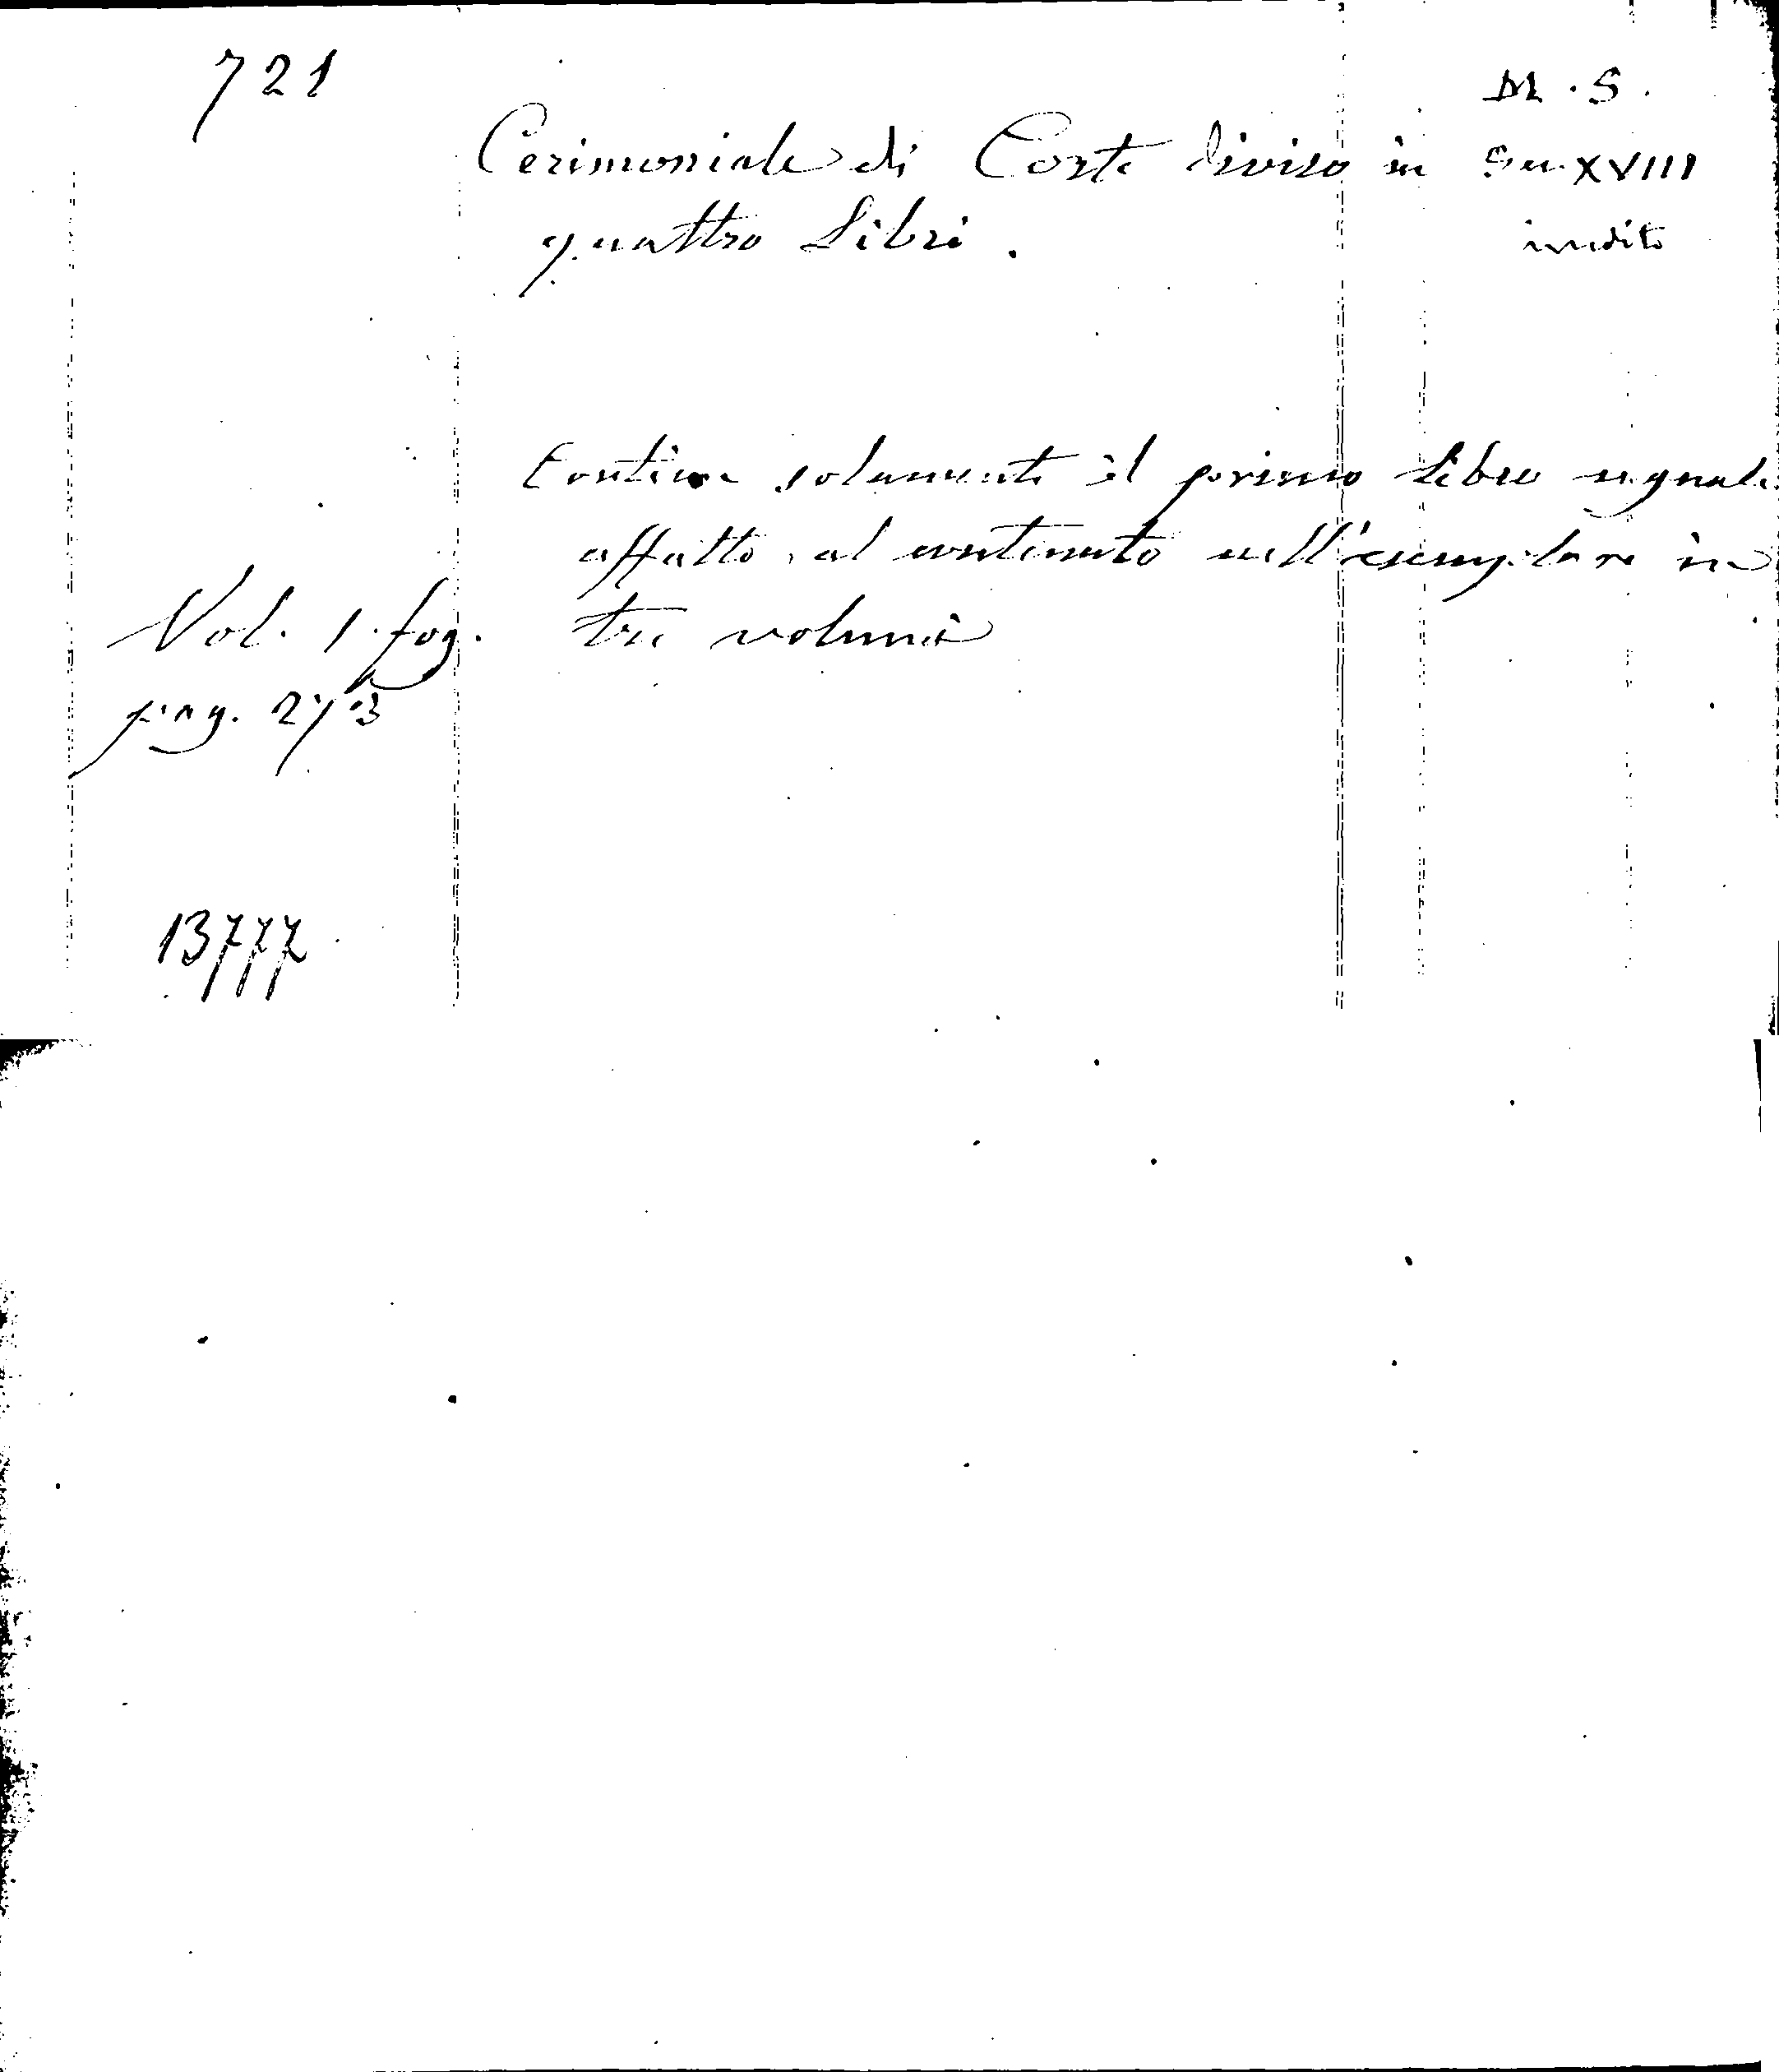 721
M.S.
Cerimoniale di Corte diviso in
Sec. XVIII
quattro Libri.
inedito
Contiene solamente il primo Libro
affatto al contenuto nell'esemplare in
Vol. 1. fog.
tre volumi
pag. 273
13777